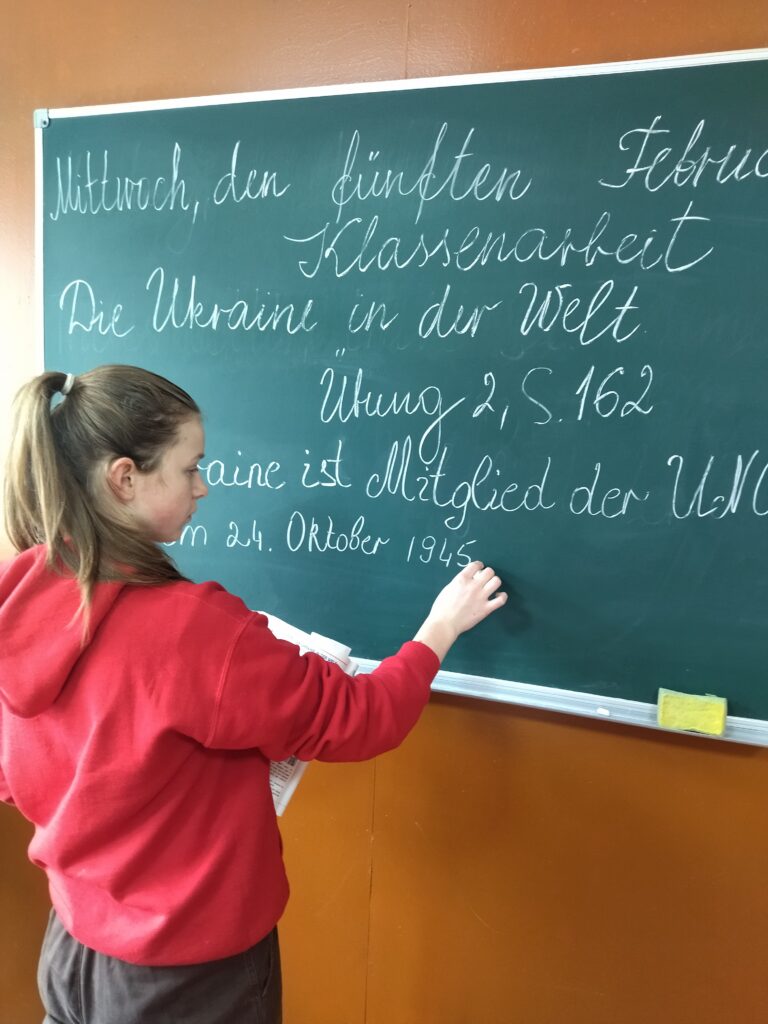 Mittwoch, den fünften Februa
Klassenarbeit
Die Ukraine in der Welt.
Übung 2, S. 162
raine ist Mitglied der UNO
em 24. Oktober 1945